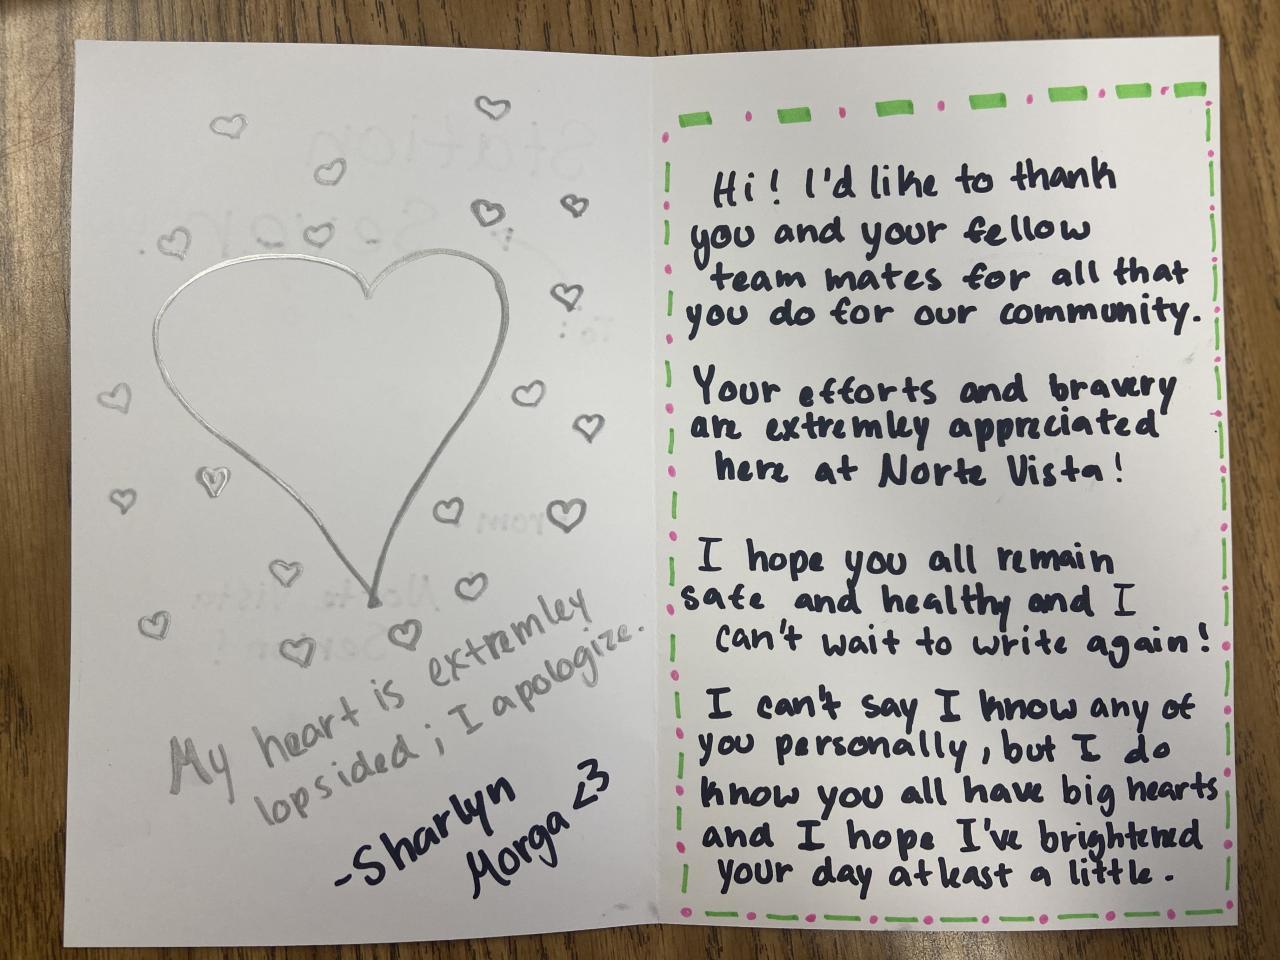 My heart is extremley
lopsided; I apologize.
-Sharlyn
Morga <3
Hi! I'd like to thank
you and your fellow
team mates for all that
you do for our community.
Your efforts and bravery
are extremley appreciated
here at Norte Vista!
I hope you all remain
safe and healthy and I
can't wait to write again!
I can't say I know any of
you personally, but I do
know you all have big hearts
and I hope I've brightened
your day atleast a little.